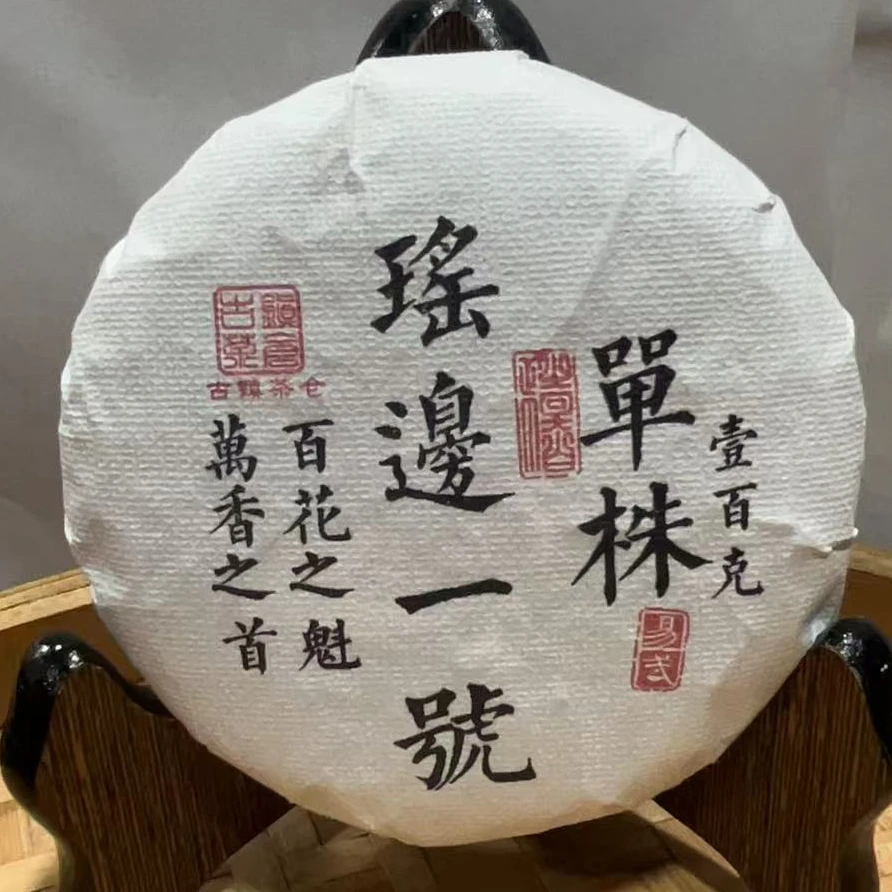 壹百克
單株
易武
瑤邊一號
百花之魁
萬香之首
古鎮
茶倉
古鎮茶仓